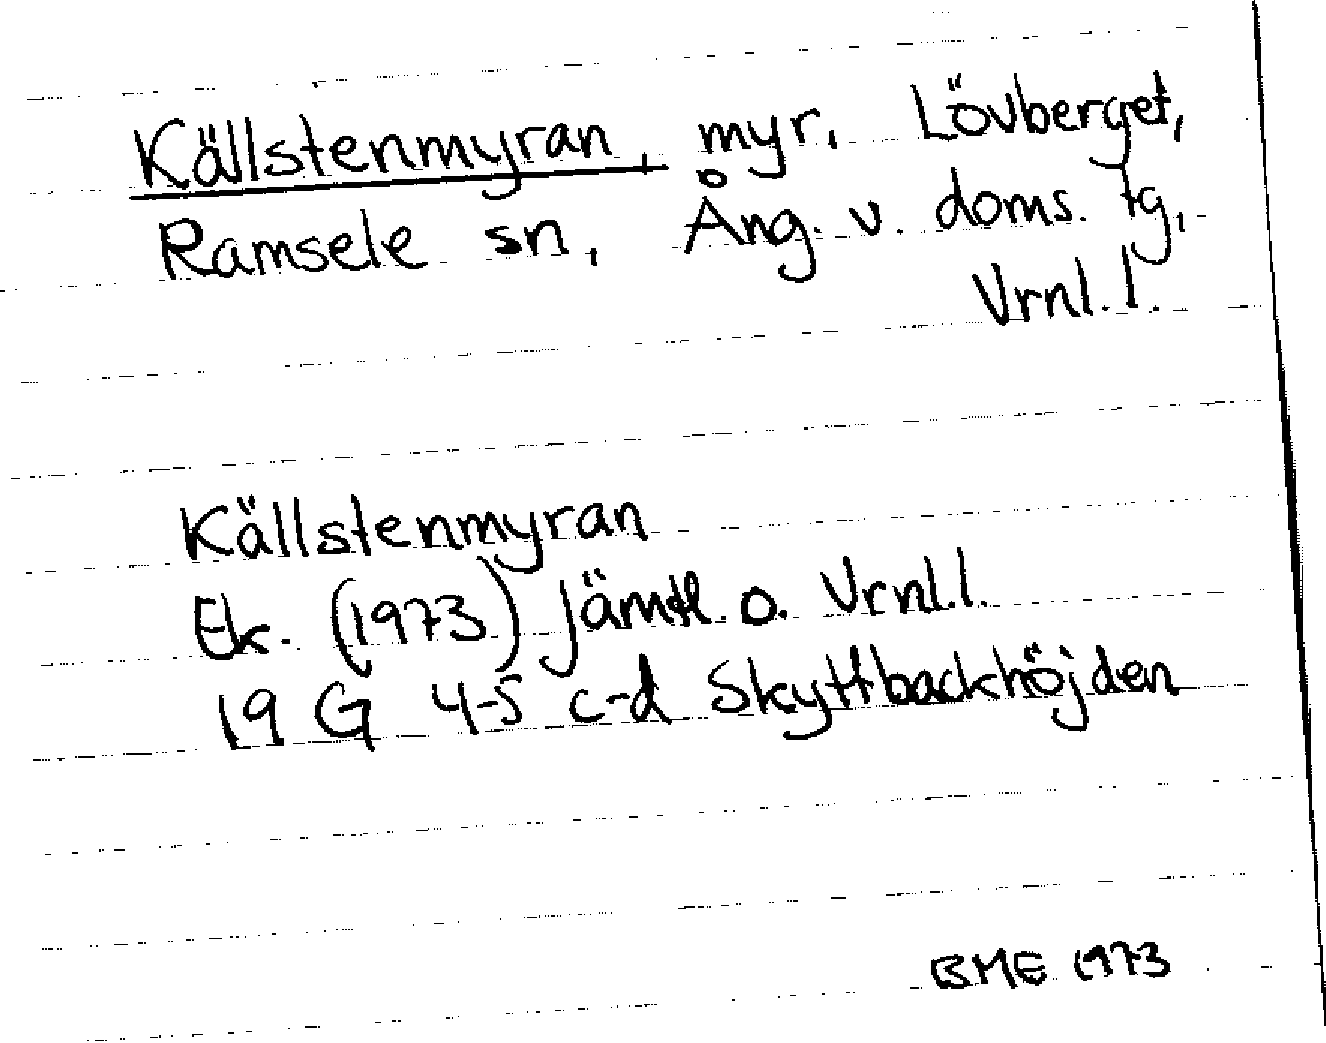 Källstenmyran, myr, Lövberget,
Ramsele sn, Ång. v. doms. tg,
Vrnl. l.
Källstenmyran
Ek. (1973) Jämtl. o. Vrnl.l.
19 G 4-5 c-d Skyttbackhöjden
BME 1973